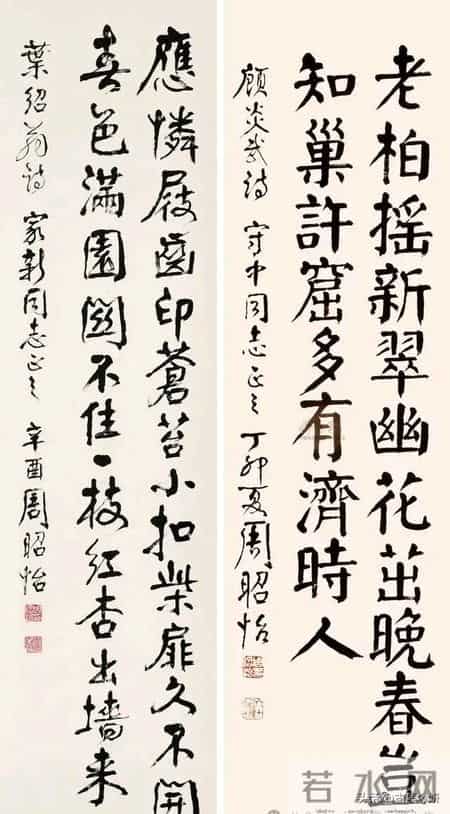 老柏摇新翠幽花茁晚春豈
知巢許窟多有濟時人
顧炎武詩 守中同志正之 丁卯夏周昭怡
應憐屐齒印蒼苔小扣柴扉久不開
春色滿園關不住一枝紅杏出墻来
葉紹翁詩 家新同志正之 辛酉周昭怡
若水网